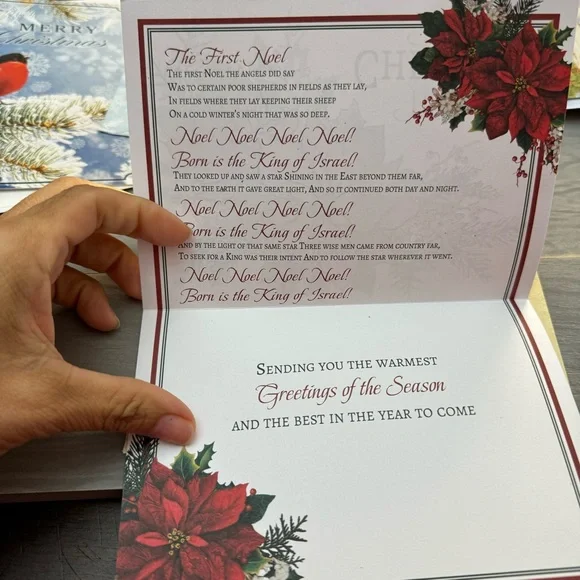 MERRY
Christmas
The First Noel
THE FIRST NOEL THE ANGELS DID SAY
WAS TO CERTAIN POOR SHEPHERDS IN FIELDS AS THEY LAY,
IN FIELDS WHERE THEY LAY KEEPING THEIR SHEEP
ON A COLD WINTER'S NIGHT THAT WAS SO DEEP.
Noel Noel Noel Noel!
Born is the King of Israel!
THEY LOOKED UP AND SAW A STAR SHINING IN THE EAST BEYOND THEM FAR,
AND TO THE EARTH IT GAVE GREAT LIGHT, AND SO IT CONTINUED BOTH DAY AND NIGHT.
Noel Noel Noel Noel!
Born is the King of Israel!
AND BY THE LIGHT OF THAT SAME STAR THREE WISE MEN CAME FROM COUNTRY FAR,
TO SEEK FOR A KING WAS THEIR INTENT AND TO FOLLOW THE STAR WHEREVER IT WENT.
Noel Noel Noel Noel!
Born is the King of Israel!
SENDING YOU THE WARMEST
Greetings of the Season
AND THE BEST IN THE YEAR TO COME